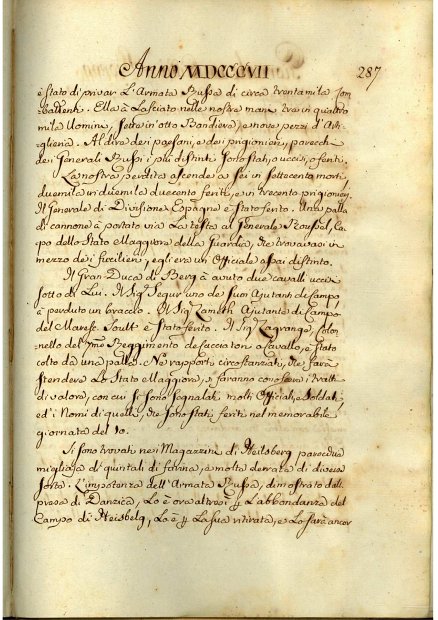 Anno MDCCCVII
287
è stato di privar L'Armata Russa di circa trentamila Com,
battenti. Ella à Lasciato nelle nostre mani tra in quattro
mila Uomini, sette in otto Bandiere, e nove pezzi d'Arti-
glieria. Al dire dei paesani, e dei prigionieri, parecchi
dei Generali Russi i più distinti sono stati, o uccisi, o feriti.
La nostra perdita ascende a sei in settecento morti
duemila in duemila duecento feriti, e in trecento prigionieri.
Il Generale di Divisione Espagne è stato ferito. Una palla
di cannone à portato via La testa al Generale Roussel, Ca,
po dello Stato Maggiore della Guardia, che trovavasi in
mezzo dei fucilieri; egli era un Officiale assai distinto.
Il Gran-Duca di Berg à avuto due cavalli uccisi
sotto di Lui. Il Sig. Segur uno de suoi Ajutanti di Campo
à perduto un braccio. Il Sig. Ajutante di Campo
del Maresc. Soult è stato ferito. Il Sig. Lagrange, Colon,
nello del Reggimento de Cacciatori a Cavallo, è stato
colto da una palla. Ne rapporti circostanziati, che farà
stendere Lo Stato Maggiore, si faranno conoscere i tratti
di valore, con cui si sono segnalati molti Officiali, e Soldati
ed i Nomi di quelli, che sono stati feriti nel memorabile
giornata del 10.
Si sono trovati nei Magazzini di Heilsberg parecchie
migliaja di quintali di farina, e molta derrata di diversa
sorta. L'impotenza dell'Armata Russa, dimostrata dalla
presa di Danzica, Lo è ora altresì L'abbondanza del
Campo di Heisberg, Lo è La sua ritirata, e Lo sarà ancor